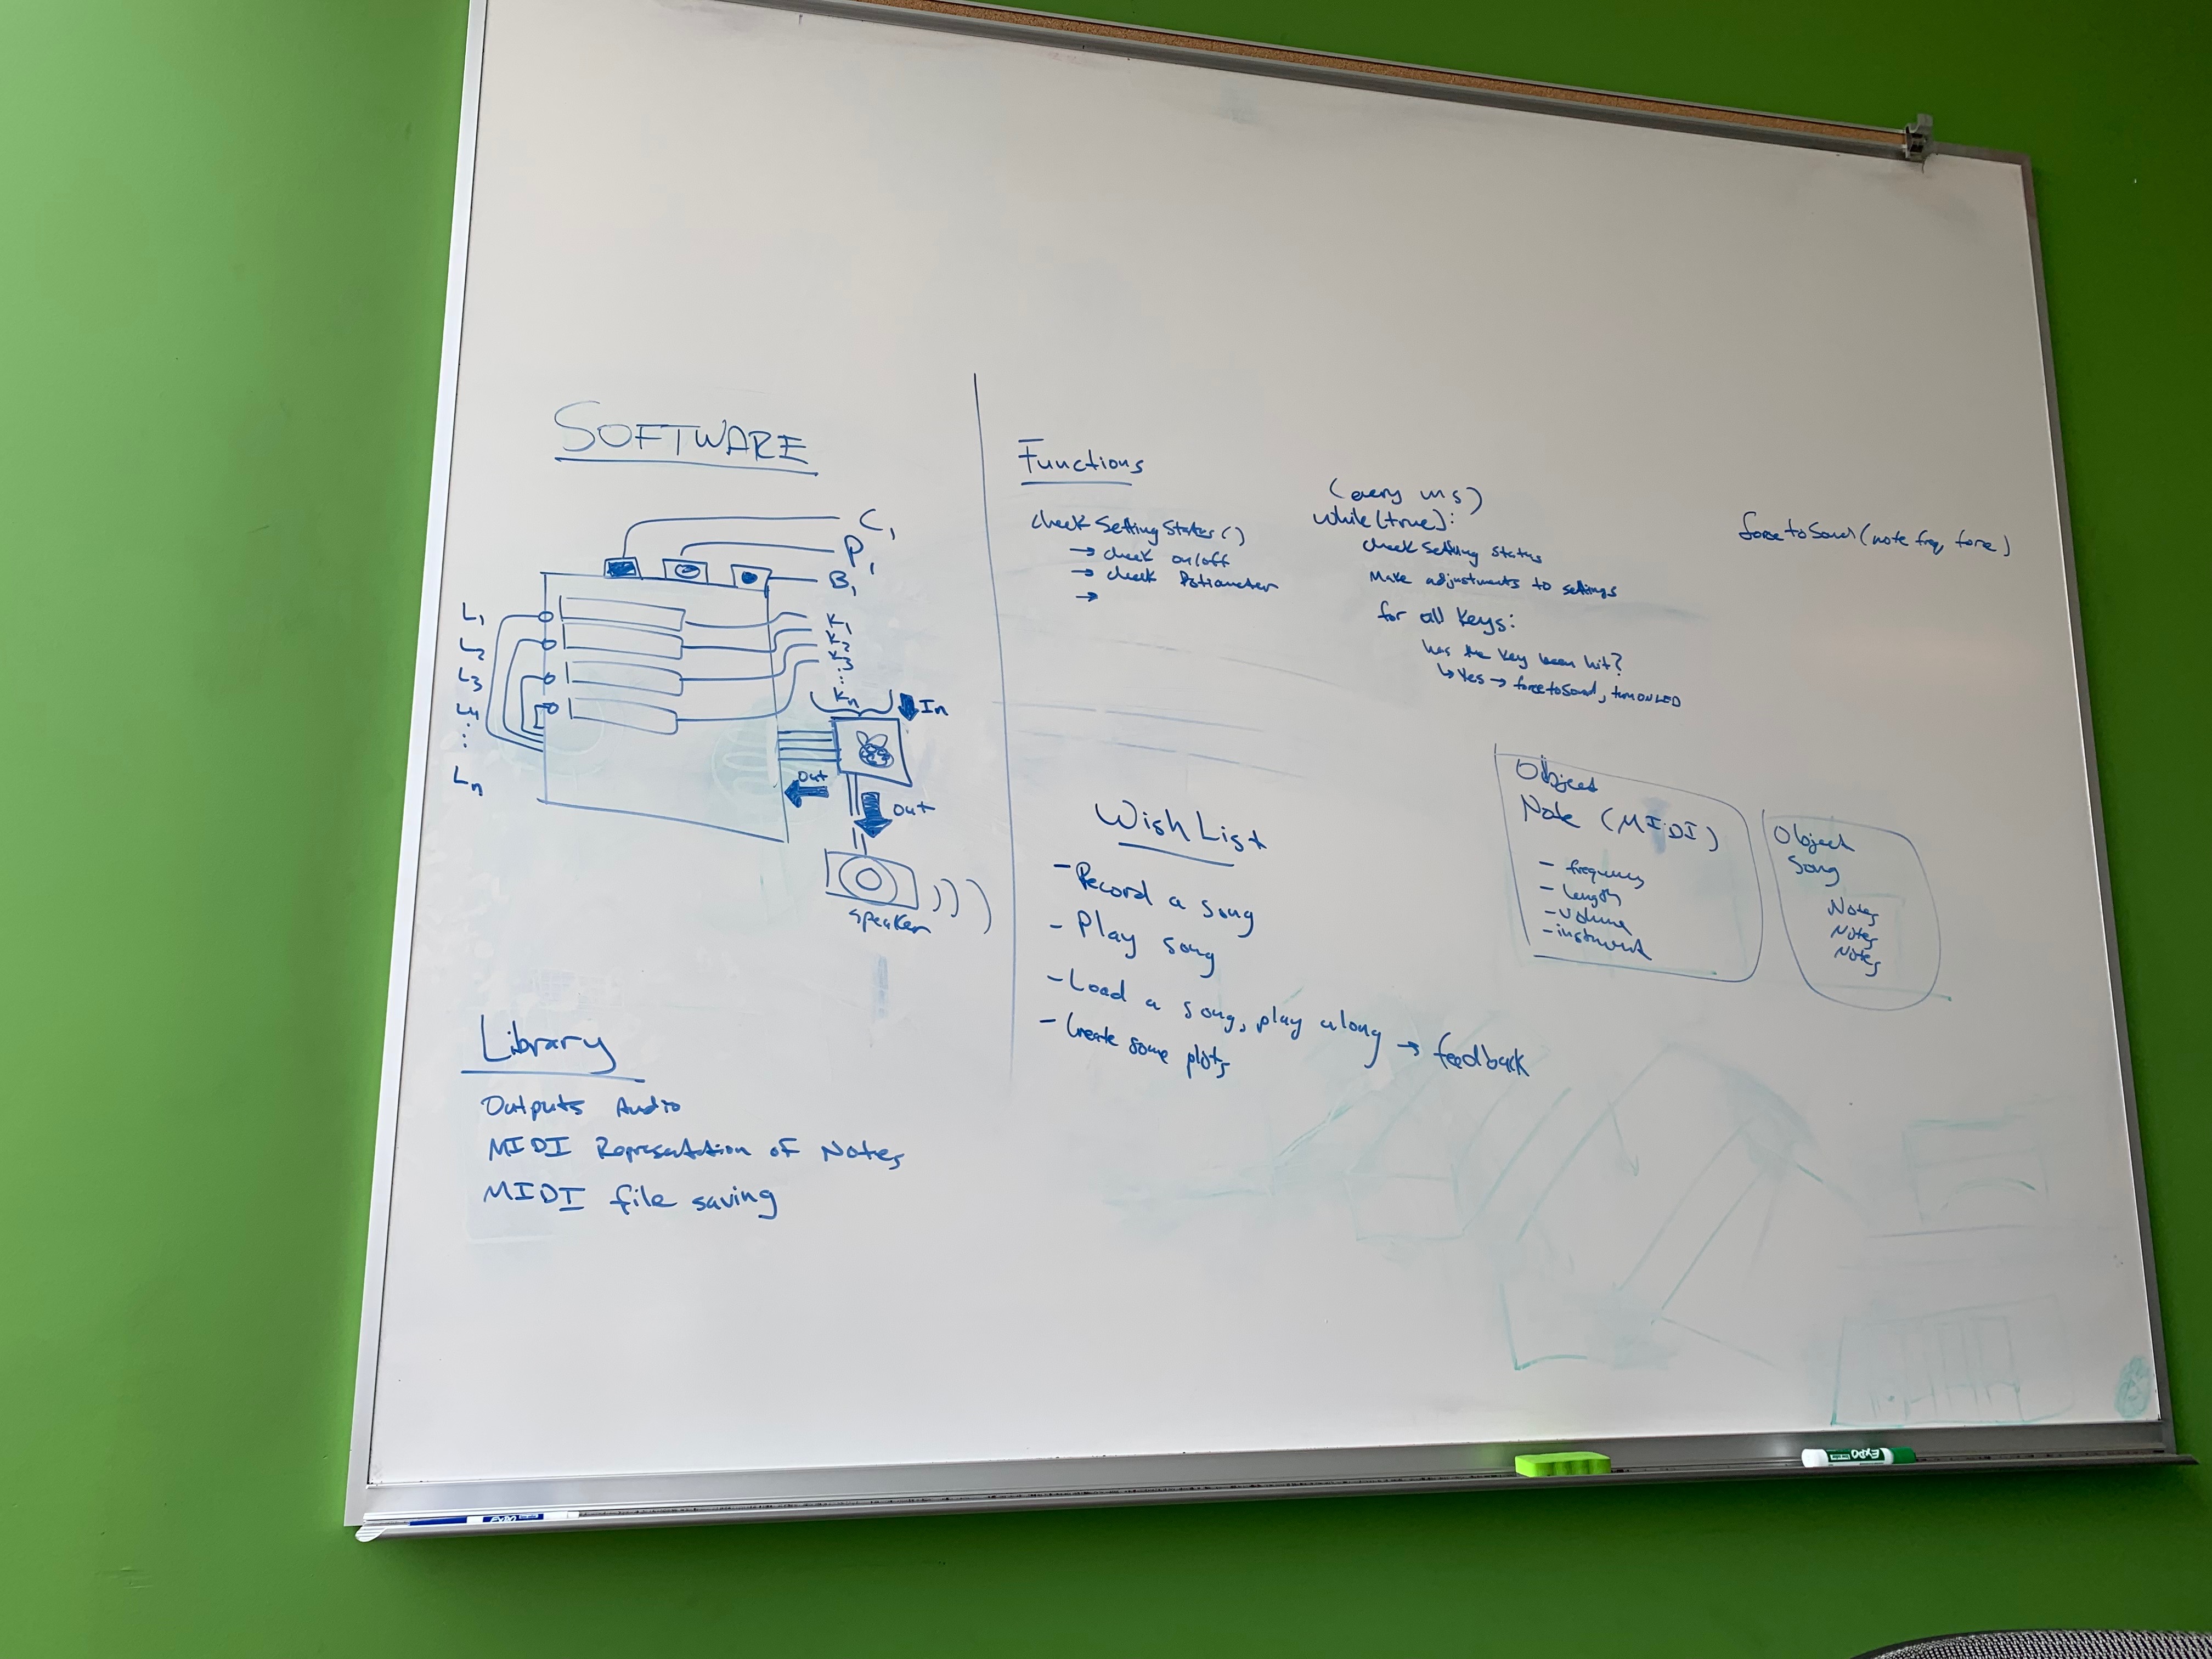 SOFTWARE
C1
P1
B1
L1
L2
L3
L4
⋮
Ln
K1
K2
K3
⋮
Kn
In
Out
Out
Speaker
Library
Outputs Audio
MIDI Represatation of Notes
MIDI file saving
Functions
check Setting Status ()
→ check on/off
→ check Potiometer
→
(every ms)
while(true):
check Setting Status
Make adjustments to settings
for all keys:
has the key been hit?
↳ Yes → forcetoSound, turn on LED
forcetoSound (note freq, force)
Wish List
- Record a song
- Play song
- Load a song, play along → feedback
- Create some plots
Object
Note (MIDI)
- frequency
- length
- volume
- instrument
Object
Song
Notes
Notes
Notes
EXPO
EXPO